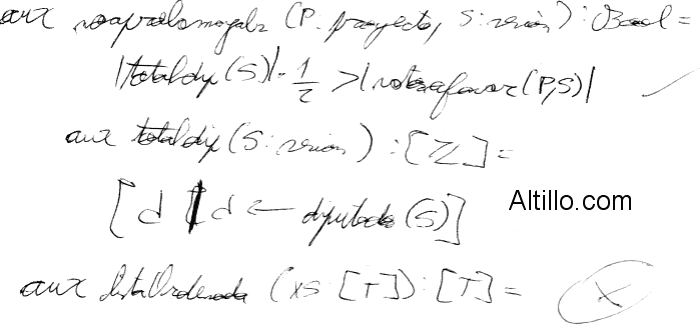 aux noapruebamayoria (P: proyecto, S: sesion) : Bool =
|totaldip(S)| · 1/2 > |votosafavor(P,S)|
aux totaldip(S: sesion) : [Z] =
[d | d ← diputados(S)]
Altillo.com
aux listaOrdenada (xs: [T]) : [T] = X